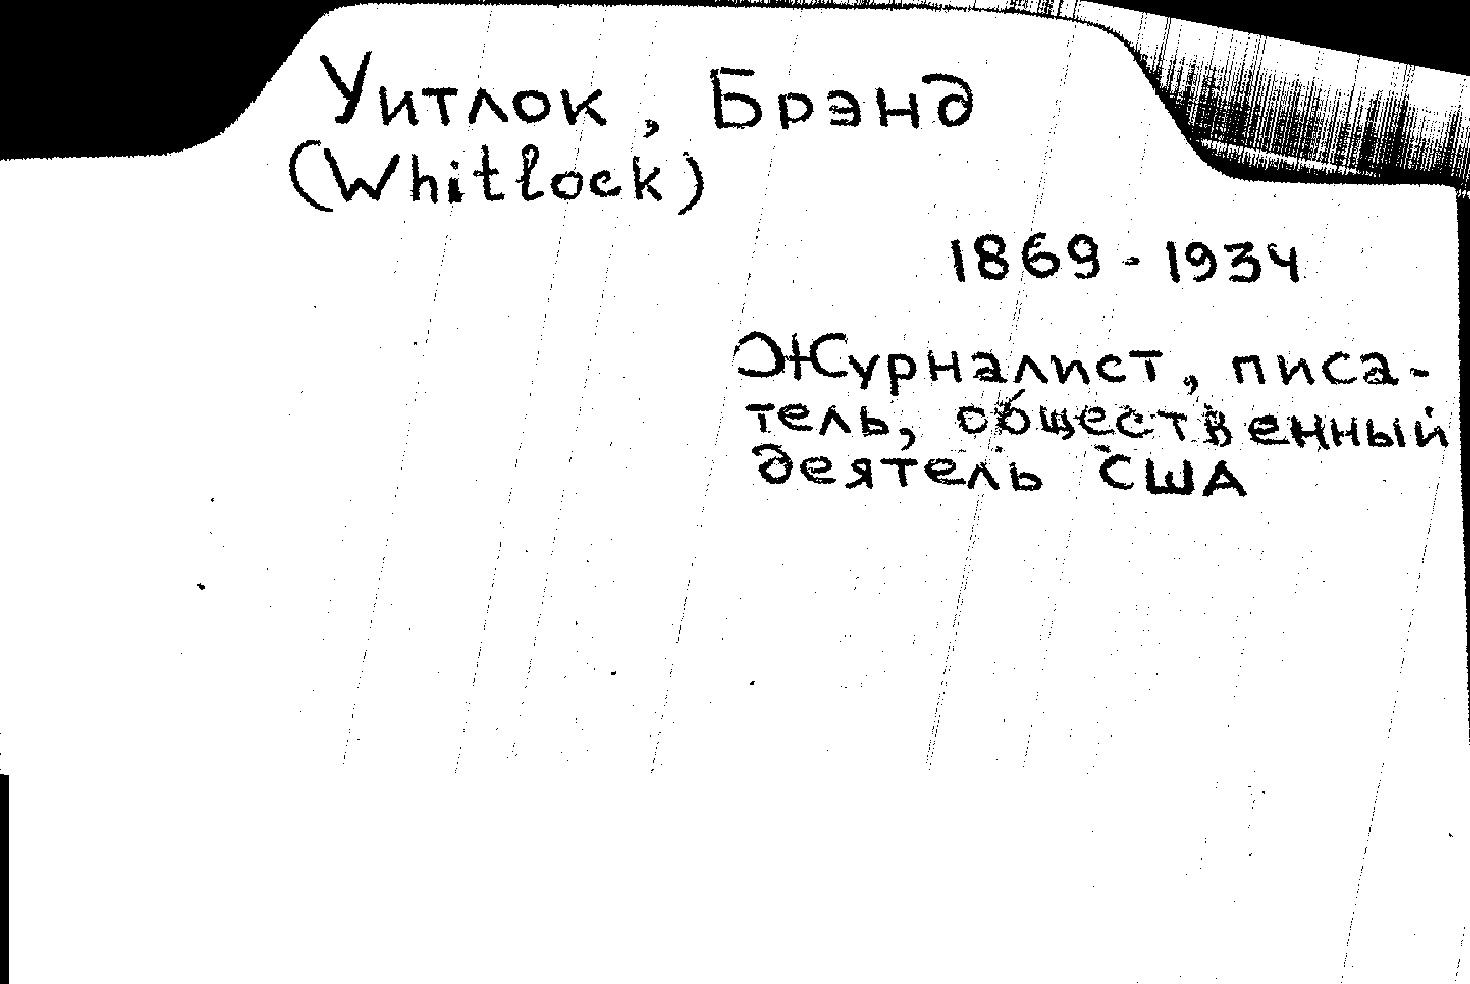 Уитлок, Брэнд
(Whitlock)
1869-1934
Журналист, писа-
тель, общественный
деятель США